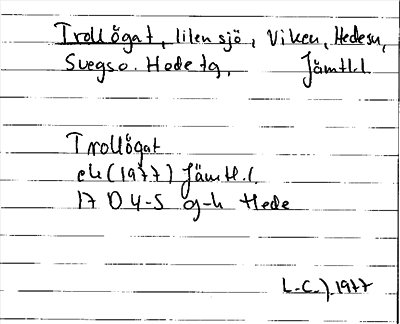 Trollögat, liten sjö, Viken, Hedesn,
Svegs o. Hede tg, Jämtl.l.
Trollögat
ek (1977) Jämtl.l.
17 D 4-5 g-h Hede
L.C.J. 1977